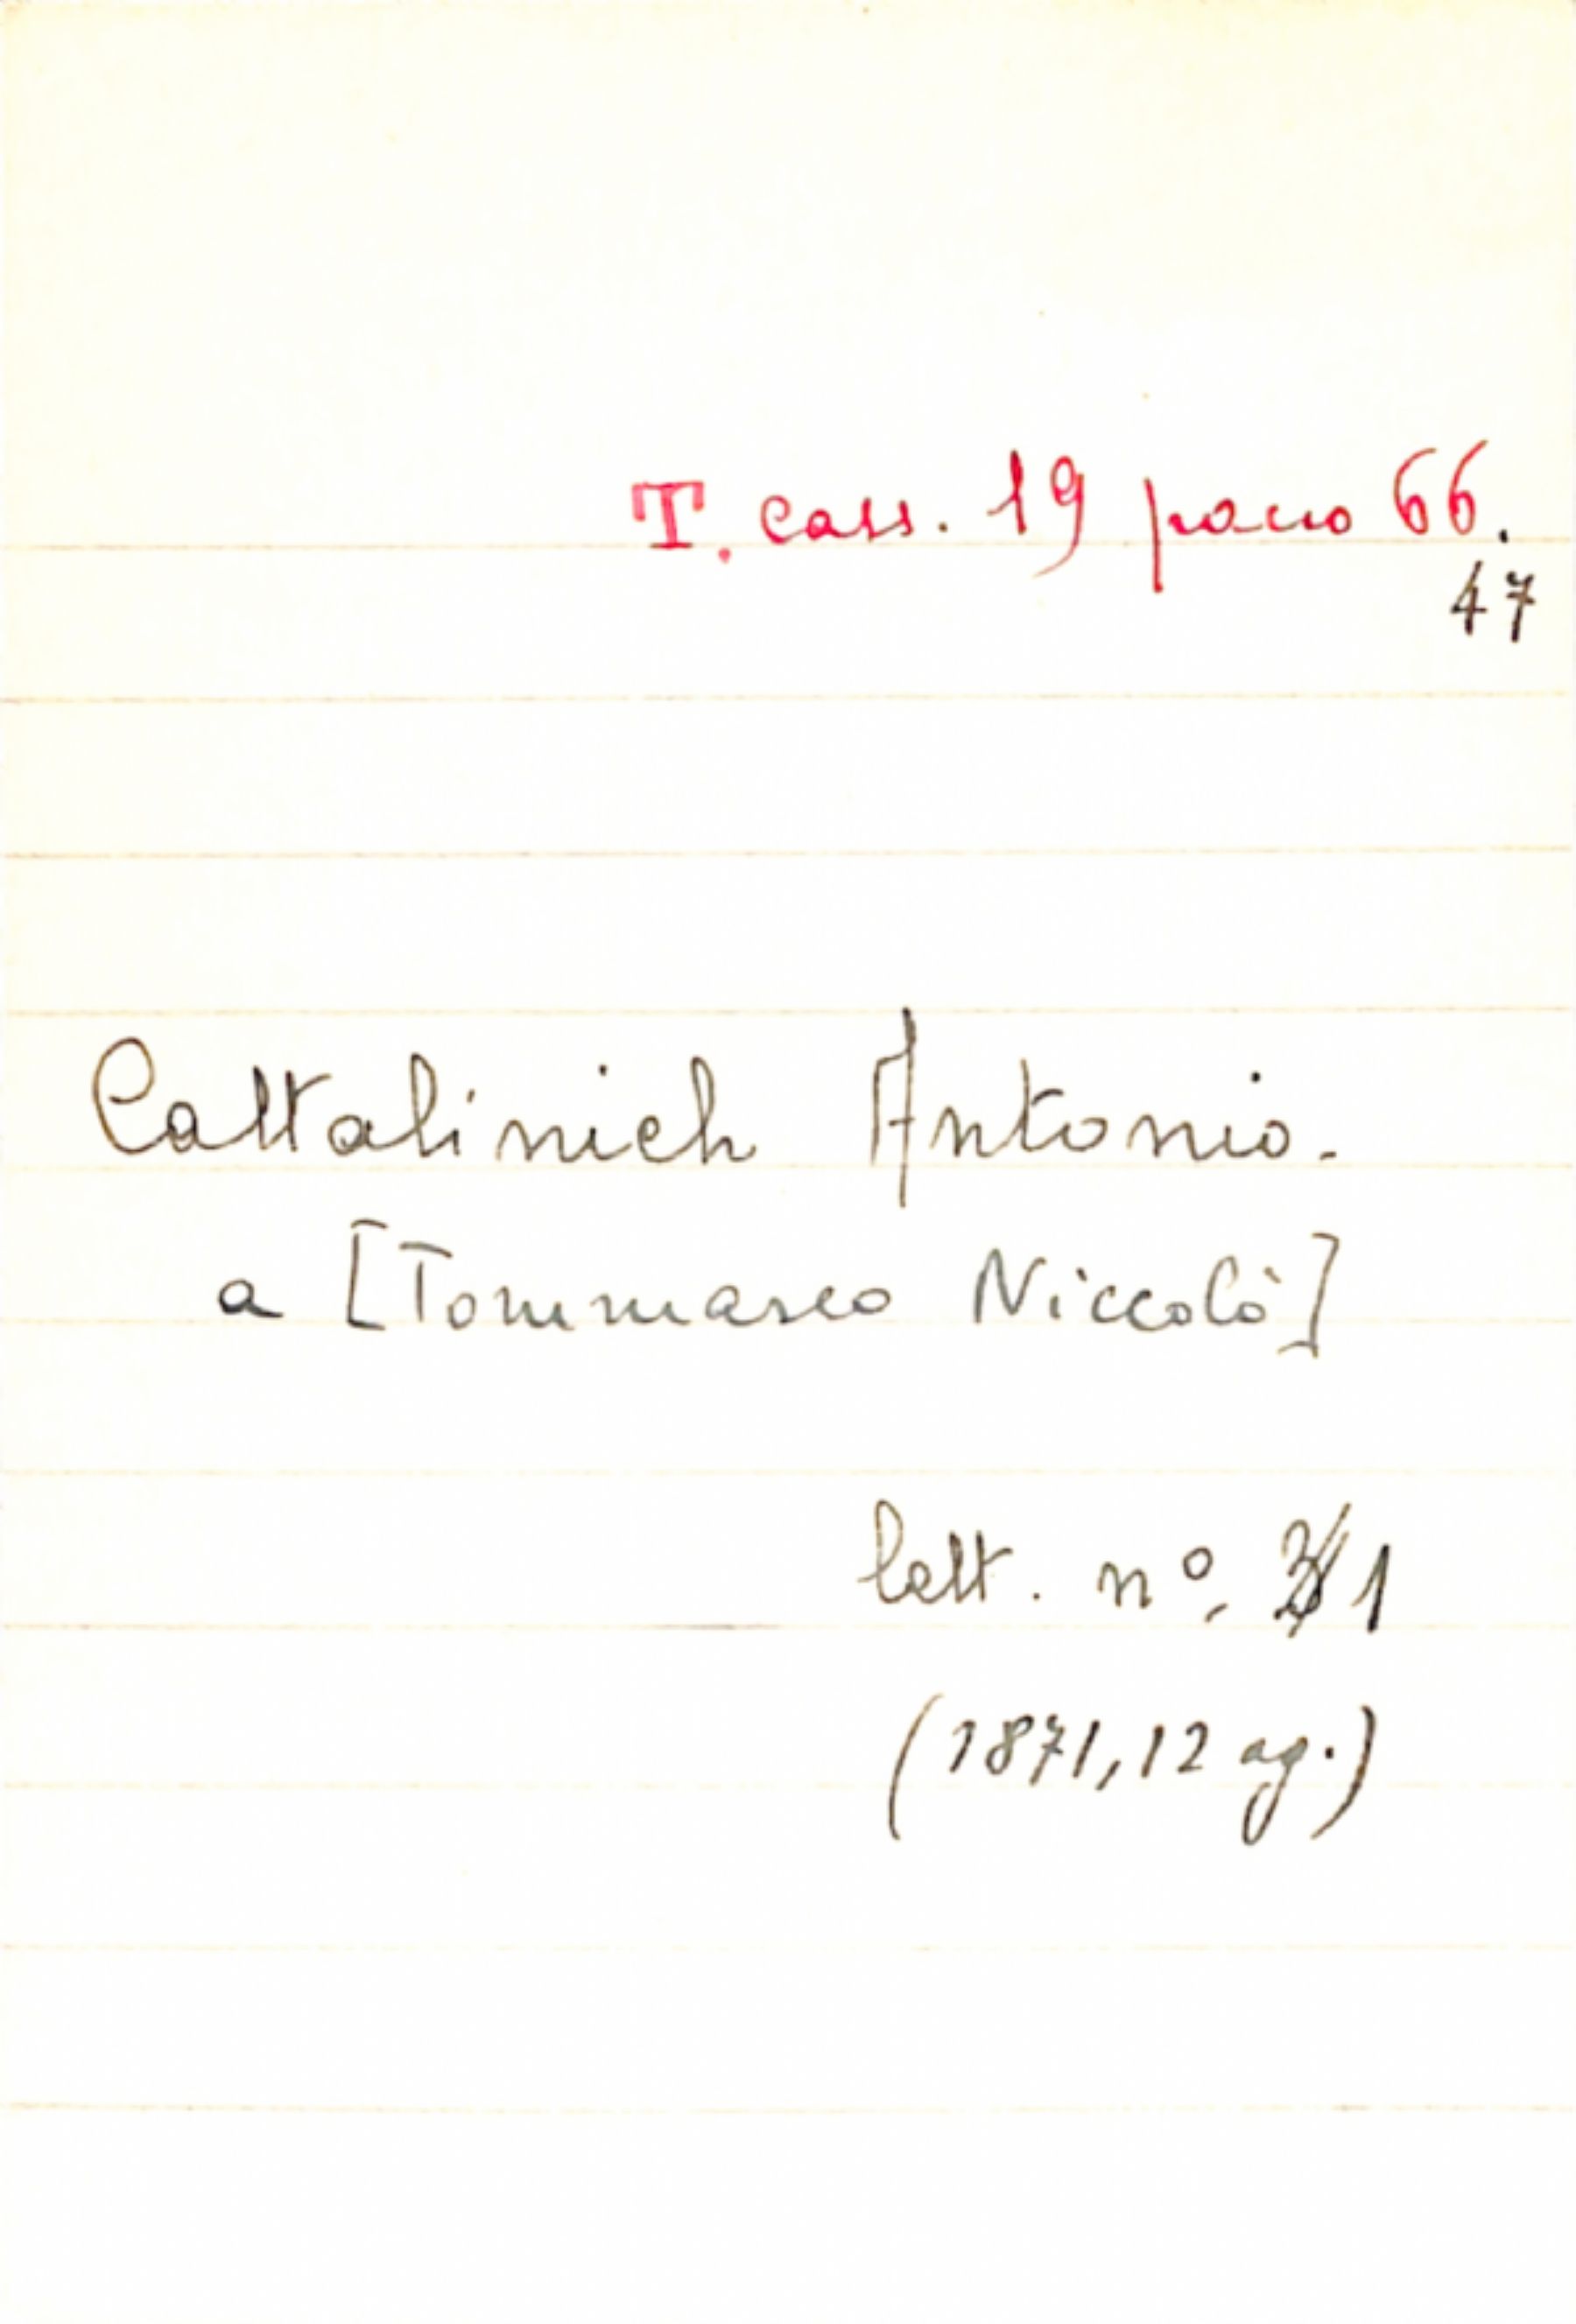 T. cass. 19 pacco 66.
47
Cattalinich Antonio.
a [Tommaseo Niccolò]
lett. nº. 1
(1871, 12 ag.)